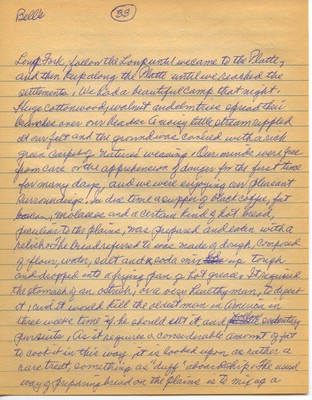 Bell's
33
Loup Fork, follow the Loup until we came to the Platte,
and then keep along the Platte until we reached the
settlements. We had a beautiful camp that night.
Huge cottonwood, walnut and elm trees spread their
branches over our heads. A noisy little stream rippled
at our feet and the ground was covered with a rich
green carpet of natures weaving. Our minds were free
from care or the apprehension of danger for the first time
for many days, and we were enjoying our pleasant
surroundings. In due time a supper of black coffee, fat
bacon, molasses and a certain kind of hot bread,
peculiar to the plains, was prepared and eaten with a
relish. The bread referred to was made of dough, composed
of flour, water, salt and soda mixed up tough
and dropped into a frying pan of hot grease. It required
the stomach of an ostrich, or a very healthy man, to digest
it; and it would kill the oldest man in America in
three weeks time if he should eat it, and follow sedentary
pursuits. As it requires a considerable amount of fat
to cook it in this way it is looked upon as rather a
rare treat, something as "duff" aboard ship. The usual
way of preparing bread on the plains is to mix up a